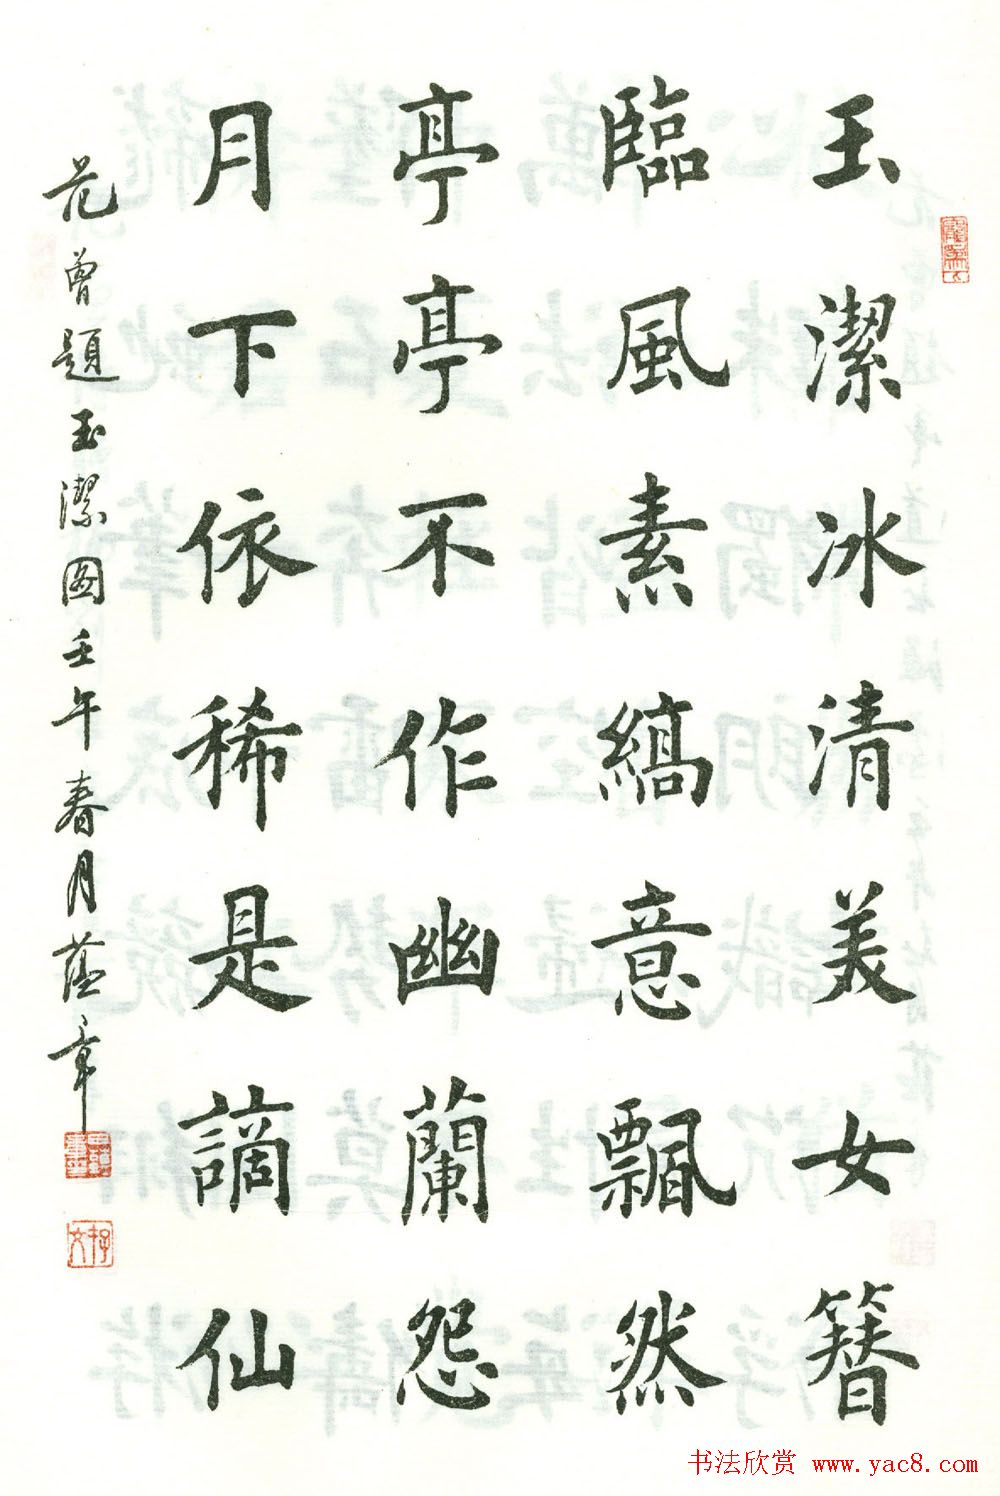 玉潔冰清美女簪
臨風素縞意飄然
亭亭不作幽蘭怨
月下依稀是謫仙
范曾題玉潔圖壬午春月蘊章
书法欣赏 www.yac8.com